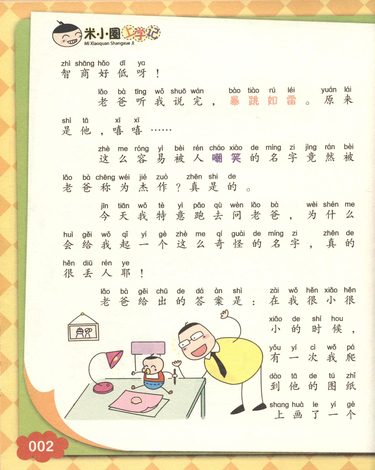 米小圈上学记
Mi Xiaoquan Shangxue Ji
zhì shāng hǎo dī ya
智商好低呀！
lǎo bà tīng wǒ shuō wán bào tiào rú léi yuán lái
老爸听我说完，暴跳如雷。原来
shì tā xī xī
是他，嘻嘻……
zhè me róng yì bèi rén cháo xiào de míng zi jìng rán bèi
这么容易被人嘲笑的名字竟然被
lǎo bà chēng wéi jié zuò zhēn shi de
老爸称为杰作？真是的。
jīn tiān wǒ tè yì pǎo qù wèn lǎo bà wèi shén me
今天我特意跑去问老爸，为什么
huì gěi wǒ qǐ yí gè zhè me qí guài de míng zi zhēn de
会给我起一个这么奇怪的名字，真的
hěn diū rén ye
很丢人耶！
lǎo bà gěi chū de dá àn shì zài wǒ hěn xiǎo hěn
老爸给出的答案是：在我很小很
xiǎo de shí hou
小的时候，
yǒu yí cì wǒ pá
有一次我爬
dào tā de tú zhǐ
到他的图纸
shang huà le yí gè
上画了一个
002